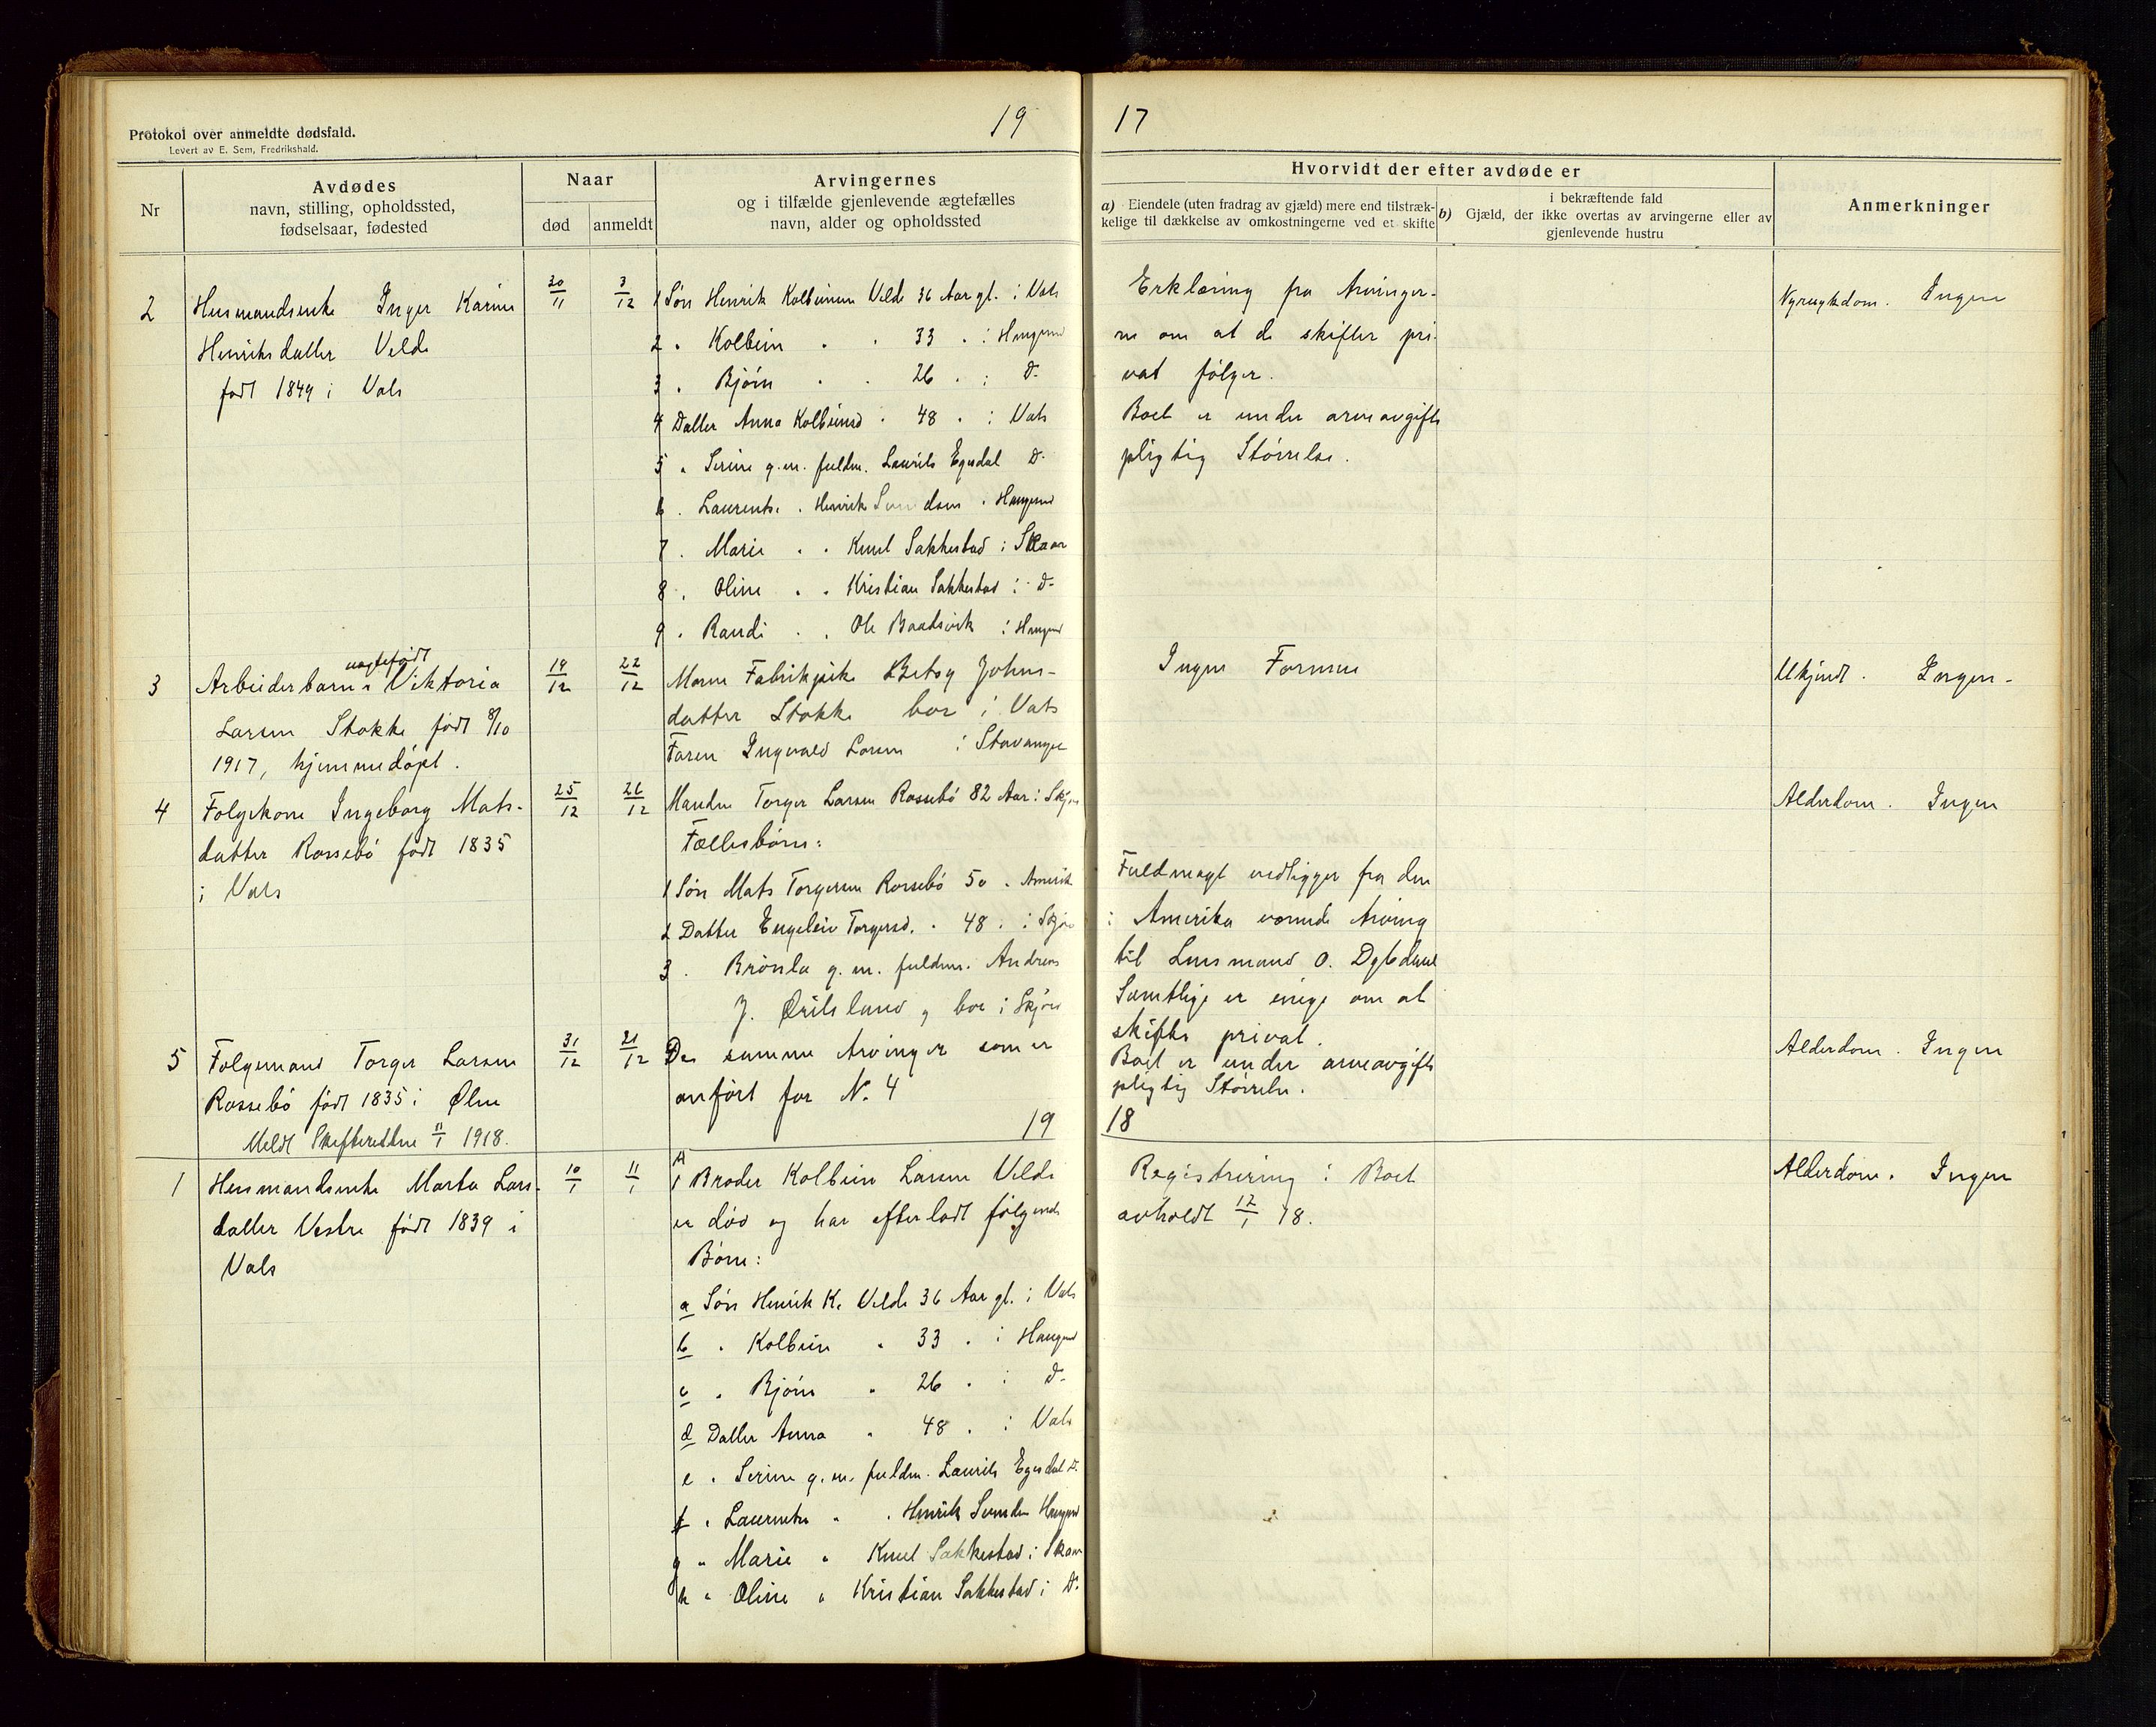 Protokol over anmeldte dødsfald.
Levert av E. Sem, Fredrikshald.
19
Nr
Avdødes
navn, stilling, opholdssted,
fødselsaar, fødested
Naar
død
anmeldt
Arvingernes
og i tilfælde gjenlevende ægtefælles
navn, alder og opholdssted
2
Husmandsenke Inger Karine
Henriksdatter Velde
født 1849 i Vats
20/11
3/12
1 Søn Henrik Kolbeinsen Velde 36 Aar gl. i Vats
2 " Kolbein " " 33 " i Haugesund
3 " Bjørn " " 26 " i Do
4 Datter Anna Kolbeinsd " 48 " i Vats
5 " Serine g.m. fuldm. Laurits Egesdal Do
6 " Laurentse " Henrik " Haugesund
7 " Marie " " Knut Sakkestad i Skaar
8 " Oline " " Kristian Sakkestad i Do
9 " Randi " " Ole Baadsvik i Haugesund
3
uægtefødt
Arbeiderbarn Viktoria
Larsen Stokke født 8/10
1917, hjemmedøpt.
19/12
22/12
Moren Fabrikpike Betsy Johns-
datter Stokke bor i Vats
Faren Ingvald Larsen i Stavanger
4
Folgekone Ingeborg Mats-
datter Rossebø født 1835
i Vats
25/12
26/12
Manden Torger Larsen Rossebø 82 Aar i Skjold
Fællesbørn:
1 Søn Mats Torgersen Rossebø 50 " Amerik
2 Datter Engeleiv Torgersd. " 48 " i Skjold
3 " Brønla g.m. fuldm. Andreas
J. Ørilsland og bor i Skjold
5
Folgemand Torger Larsen
Rossebø født 1835 i Ølen
Meldt Skifteretten 11/1 1918.
31/12
21/12
De samme Arvinger som er
anført for N. 4
19
1
Husmandsenke Marta Lars-
datter Vestre født 1839 i
Vats
10/1
11/1
1 Broder Kolbein Larsen Velde
er død og har efterladt følgende
Børn:
a Søn Henrik K. Velde 36 Aar gl. i Vats
b " Kolbein " 33 " i Haugesund
c " Bjørn " 26 " i Do
d Datter Anna " 48 " i Vats
e " Serine g.m. fuldm. Laurits Egesdal Do
f " Laurentse " " Henrik Haugesund
g " Marie " Knut Sakkestad i Skaar
h " Oline " Kristian Sakkestad i Do
17
Hvorvidt der efter avdøde er
a) Eiendele (uten fradrag av gjæld) mere end tilstræk-
kelige til dækkelse av omkostningerne ved et skifte
b)
i bekræftende fald
Gjæld, der ikke overtas av arvingerne eller av
gjenlevende hustru
Anmerkninger
Erklæring fra Arvinger-
ne om at de skifter pri-
vat følger.
Boet er under arveavgifts
pligtig Størrelse.
Nyresykdom. Ingen
Ingen Formue
Ukjendt. Ingen-
Alderdom. Ingen
Fuldmagt vedligger fra den
i Amerika værende Arving
til Lensmand O. Dybdahl
Samtlige er enige om at
skifte privat.
Boet er under arveavgifts
pligtig Størrelse.
Alderdom. Ingen
18
Registrering i Boet
avholdt 12/1 18.
Alderdom. Ingen